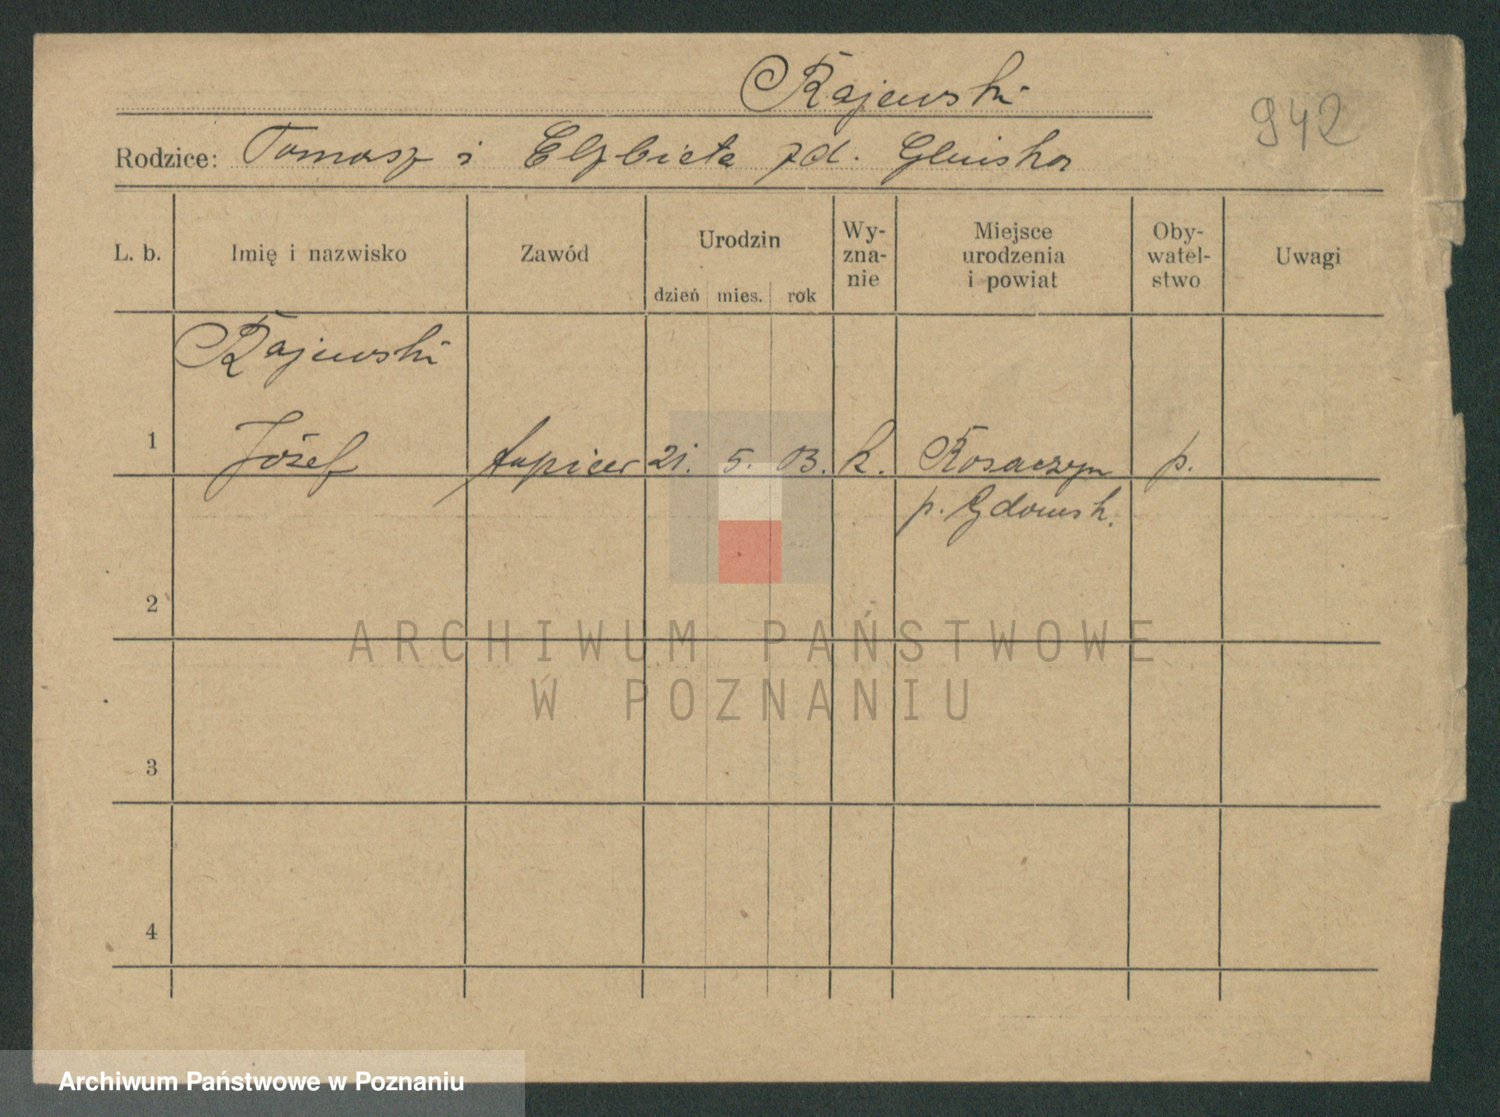 Rajewski
942
Rodzice: Tomasz i Elzbieta zd. Gluiska
L. b.
Imię i nazwisko
Zawód
Urodzin
dzień mies. rok
Wy-
zna-
nie
Miejsce
urodzenia
i powiat
Oby-
watel-
stwo
Uwagi
Rajewski
1 Józef tapicer 21. 5. 03. k. p.
p. Gdowsk.
2
3
4
ARCHIWUM PAŃSTWOWE
W POZNANIU
Archiwum Państwowe w Poznaniu